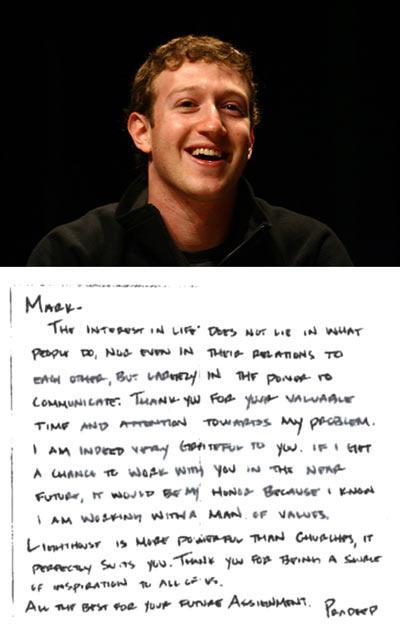 MARK-
THE INTEREST IN LIFE DOES NOT LIE IN WHAT
PEOPLE DO, NOR EVEN IN THEIR RELATIONS TO
EACH OTHER, BUT LARGELY IN THE POWER TO
COMMUNICATE. THANK YOU FOR YOUR VALUABLE
TIME AND ATTENTION TOWARDS MY PROBLEM.
I AM INDEED VERY GRATEFUL TO YOU. IF I GET
A CHANCE TO WORK WITH YOU IN THE NEAR
FUTURE, IT WOULD BE MY HONOR BECAUSE I KNOW
I AM WORKING WITH A MAN OF VALUES.
LIGHTHOUSE IS MORE POWERFUL THAN CHURCHES, IT
PERFECTLY SUITS YOU. THANK YOU FOR BEING A SOURCE
OF INSPIRATION TO ALL OF US.
ALL THE BEST FOR YOUR FUTURE ASSIGNMENT. PRADEEP